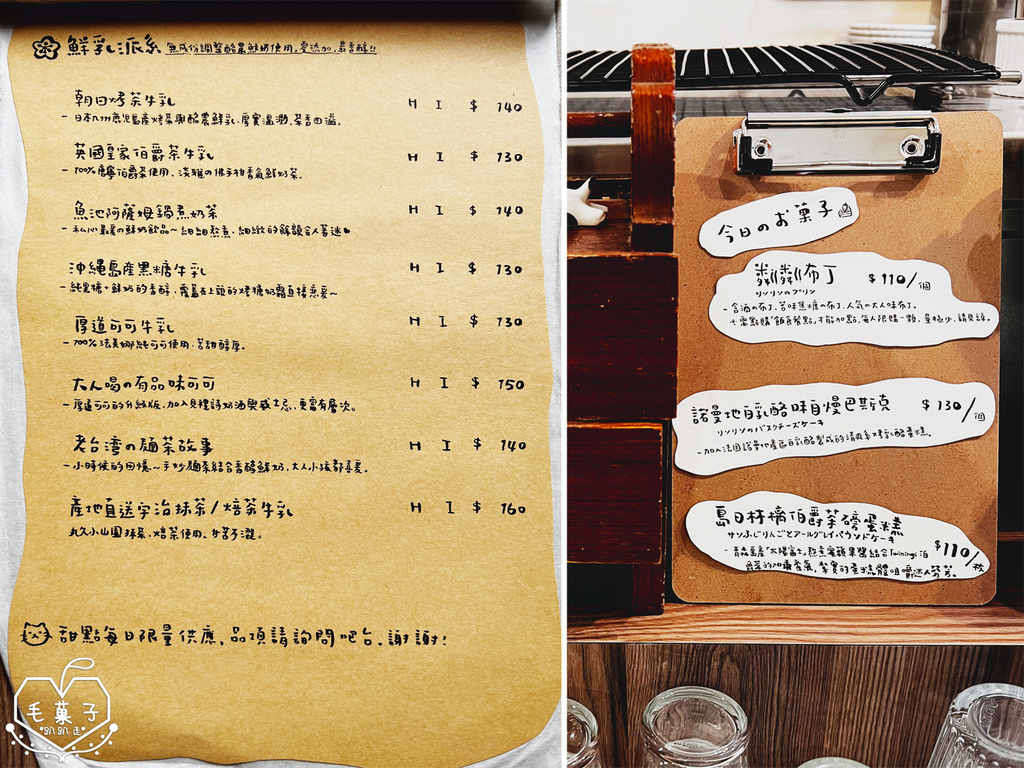 鮮乳派系 無成份調整酪農鮮奶使用,零添加,最香醇!!
朝日烤茶牛乳 H I $ 140
- 日本九州鹿児島產烤茶與酪農鮮乳.厚實溫潤.茶香四溢.
英國皇家伯爵茶牛乳 H I $ 130
- 100%唐寧伯爵茶使用、淡雅の佛手柑香氣鮮奶茶.
魚池阿薩姆鍋煮奶茶 H I $ 140
- 私心最愛の鮮奶飲品~細細熬煮.細緻的餘韻令人著迷
沖縄島產黒糖牛乳 H I $ 130
- 純黒糖+鮮奶的香醇,覆蓋在上頭的烤糖奶霜直接戀愛~
厚道可可牛乳 H I $ 130
- 100%法芙娜純可可使用.苦甜醇厚.
大人喝の有品味可可 H I $ 150
- 厚道可可的升級版,加入貝禮詩奶酒與威士忌,更富有層次。
老台湾の麵茶故事 H I $ 140
- 小時候的回憶~手炒麵茶結合香醇鮮奶.大人小孩都喜愛。
產地直送宇治抹茶/焙茶牛乳 H I $ 160
丸久小山園抹茶、焙茶使用、甘苦不澀。
甜點每日限量供應,品項請詢問吧台,謝謝!
毛菓子
趴趴走
今日のお菓子
粼粼布丁 $110/個
リンリンのプリン
- 含酒の布丁,苦味焦糖の布丁,人気の大人味布丁.
需點購「飯食餐點」才能加點,每人限購一顆,量極少,請見諒.
諾曼地乳酪味自慢巴斯克 $130/個
リンリンのバスクチーズケーキ
- 加入法國諾曼地產區乳酪製成的濃郁系烤乳酪蛋糕.
島日林檎伯爵茶磅蛋糕
サンふじりんごとアールグレイパウンドケーキ
$110/枚
- 青森島產「太陽富士」熬煮蜜蘋果醬結合Twinings伯
爵茶的加乘香氣,紮實的蛋糕體咀嚼迷人芬芳。